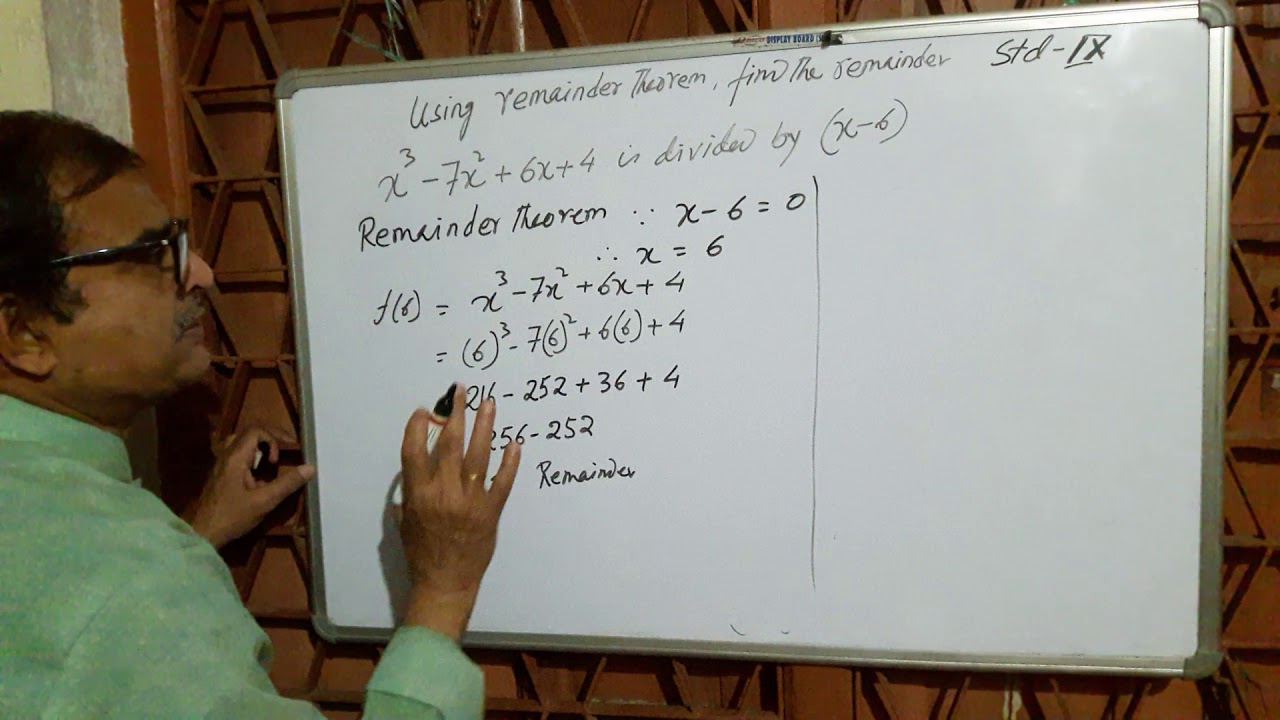 DISPLAY BOARD
Using remainder Theorem, find The remainder Std-IX
x³ - 7x² + 6x + 4 is divided by (x-6)
Remainder Theorem ∵ x - 6 = 0
∴ x = 6
f(6) = x³ - 7x² + 6x + 4
= (6)³ - 7(6)² + 6(6) + 4
216 - 252 + 36 + 4
256 - 252
Remainder